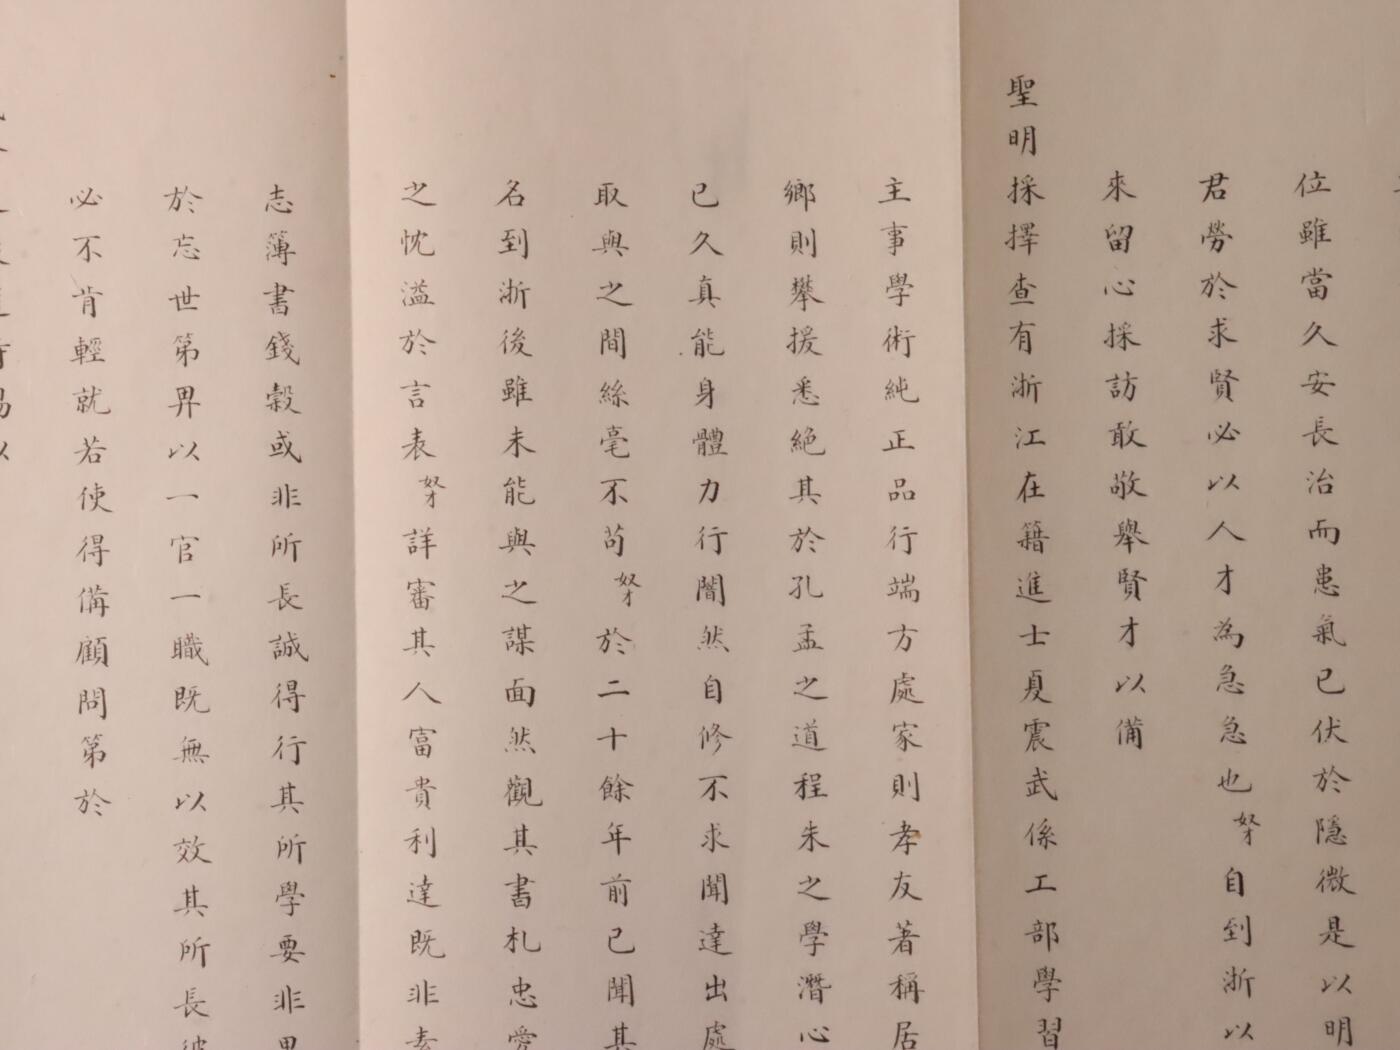 位雖當久安長治而患氣已伏於隱微是以明
君勞於求賢必以人才為急急也奴才自到浙以
來留心採訪敢敬舉賢才以備
聖明採擇查有浙江在籍進士夏震武係工部學習
主事學術純正品行端方處家則孝友著稱居
鄉則攀援悉絕其於孔孟之道程朱之學潛心
已久真能身體力行闇然自修不求聞達出處
取與之間絲毫不苟奴才於二十餘年前已聞其
名到浙後雖未能與之謀面然觀其書札忠愛
之忱溢於言表奴才詳審其人富貴利達既非素
志簿書錢穀或非所長誠得行其所學要非果
於忘世第畀以一官一職既無以效其所長彼
必不肯輕就若使得備顧問第於